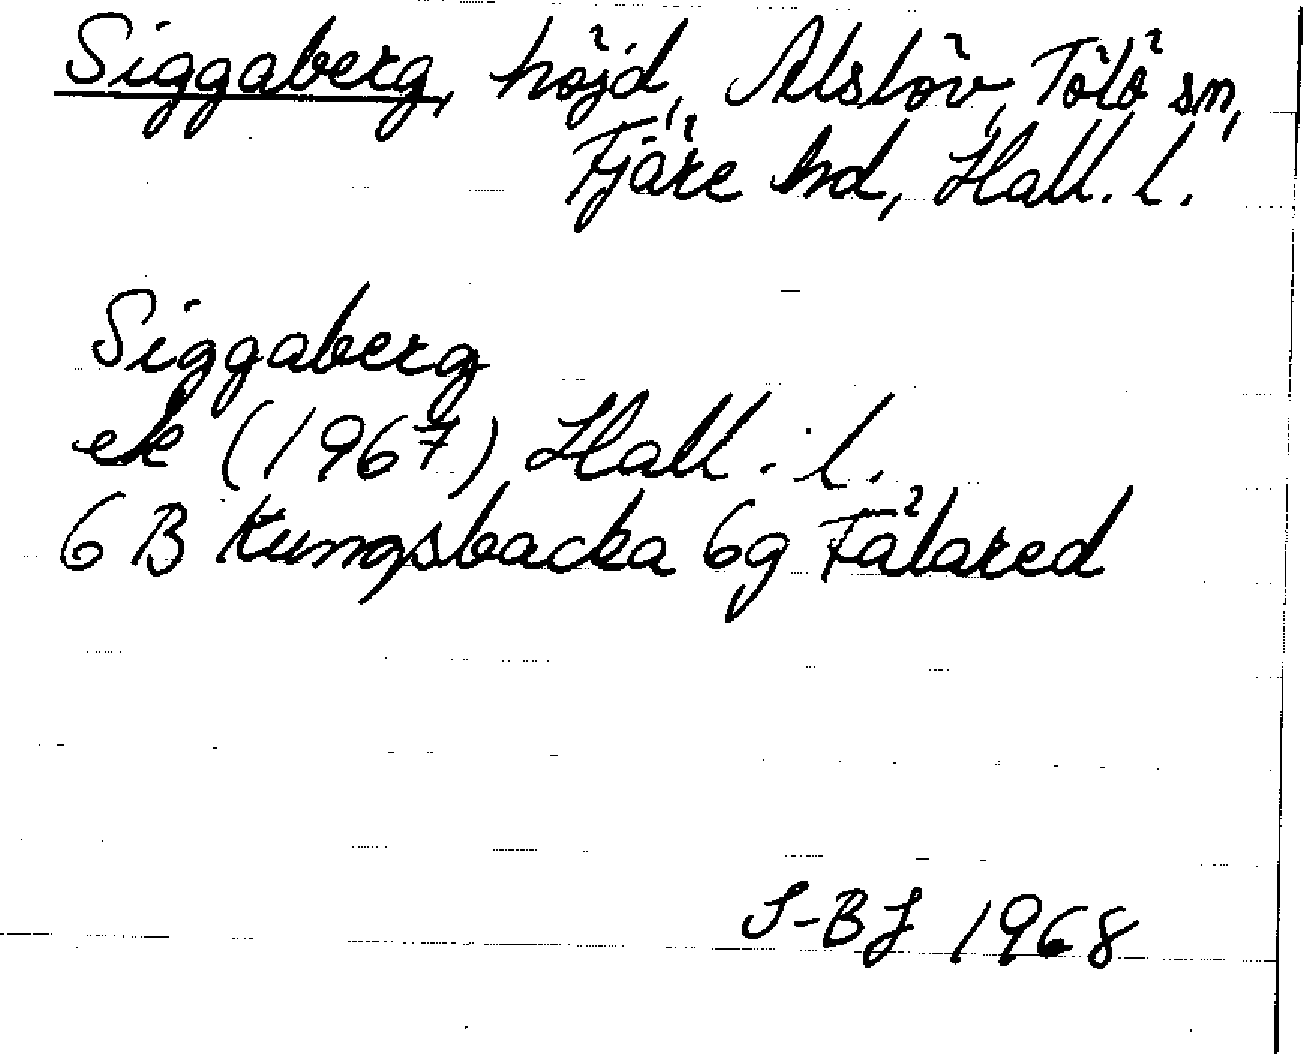 Siggaberg, höjd, Alslöv, Tölö sn,
Fjäre hd, Hall. l.
Siggaberg
ek (1967) Hall. l.
6 B Kungsbacka 6g Fälared
S-BJ 1968